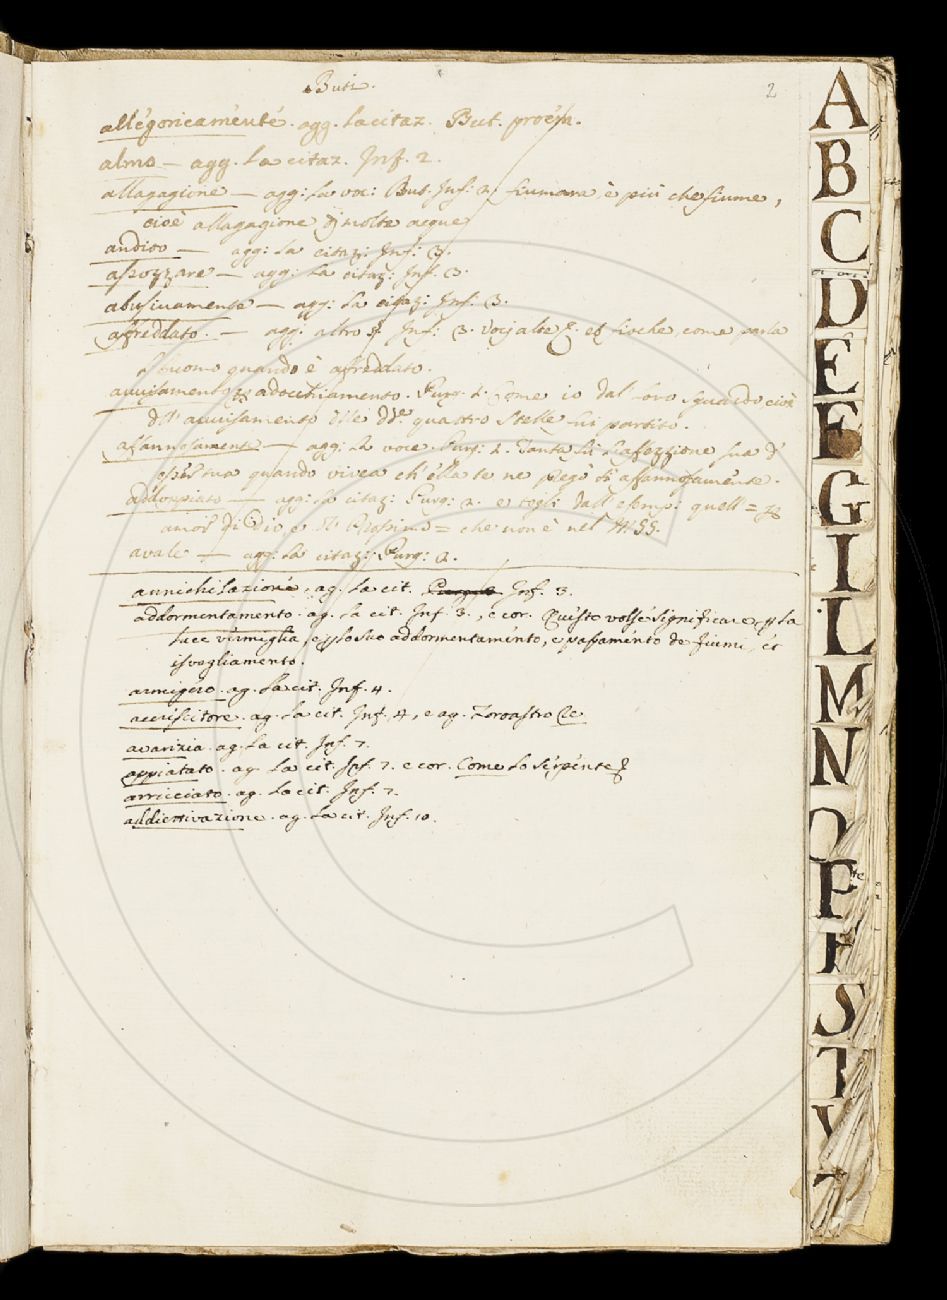 Buti.
2
allegoricamente. agg. la citaz. But. proem.
almo — agg. la citaz. Inf. 2.
allagagione — agg: la voc: But. Inf: 2. fiumara è più che fiume,
cioè allagagione di molte acque
andito — agg: la citaz: Inf: 3.
apozzare — agg: la citaz: Inf: 3.
abusivamente — agg: la citaz: Inf: 3.
afreddato. — agg: altro Inf: 3. Voci alte et fioche, come parla
l'uomo quando è afreddato.
avvisamento adocchiamento. Purg. 1. Come io dal loro sguardo cioè
dll' avvisamento dle dde. quattro Stelle fui partito.
afannosamente — agg: voce. Purg: 2. l'afezzione sua
quando vivea ch'ella te ne pregò afannosamente.
addoppiato — agg: la citaz: Purg: 2. e togli dall' esemp: quell =
amor di Dio e Prossimo = che non è nel MSS.
avale — agg: la citaz: Purg: 2.
annichilazione, ag. la cit. Inf. 3.
addormentamento. ag. la cit. Inf. 3., e cor. Questo volse significare la
luce vermiglia, e lo suo addormentamento, e passamento de fiumi, et
isvegliamento.
armigero. ag. la cit. Inf. 4.
accriscitore. ag. la cit. Inf. 4, e ag. Zoroastro &c
avarizia. ag. la cit. Inf. 7.
appiatato. ag. la cit. Inf. 7. e cor. Come lo serpente
arricciato. ag. la cit. Inf. 7.
addiettivazione. ag. la cit. Inf. 10.
A
B
C
D
E
F
G
I
L
M
N
O
P
R
S
T
V
Z